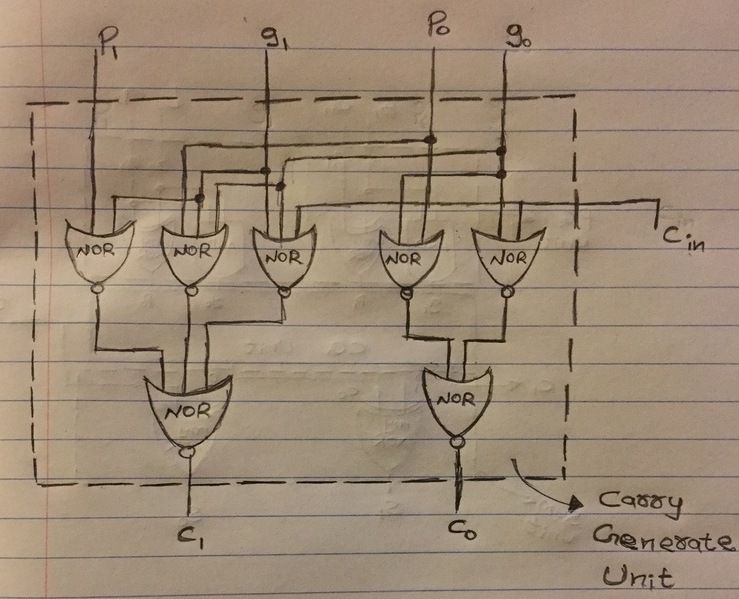 P₁ g₁ P₀ g₀
Cin
NOR NOR NOR NOR NOR
NOR NOR
C₁ C₀
Carry
Generate
Unit